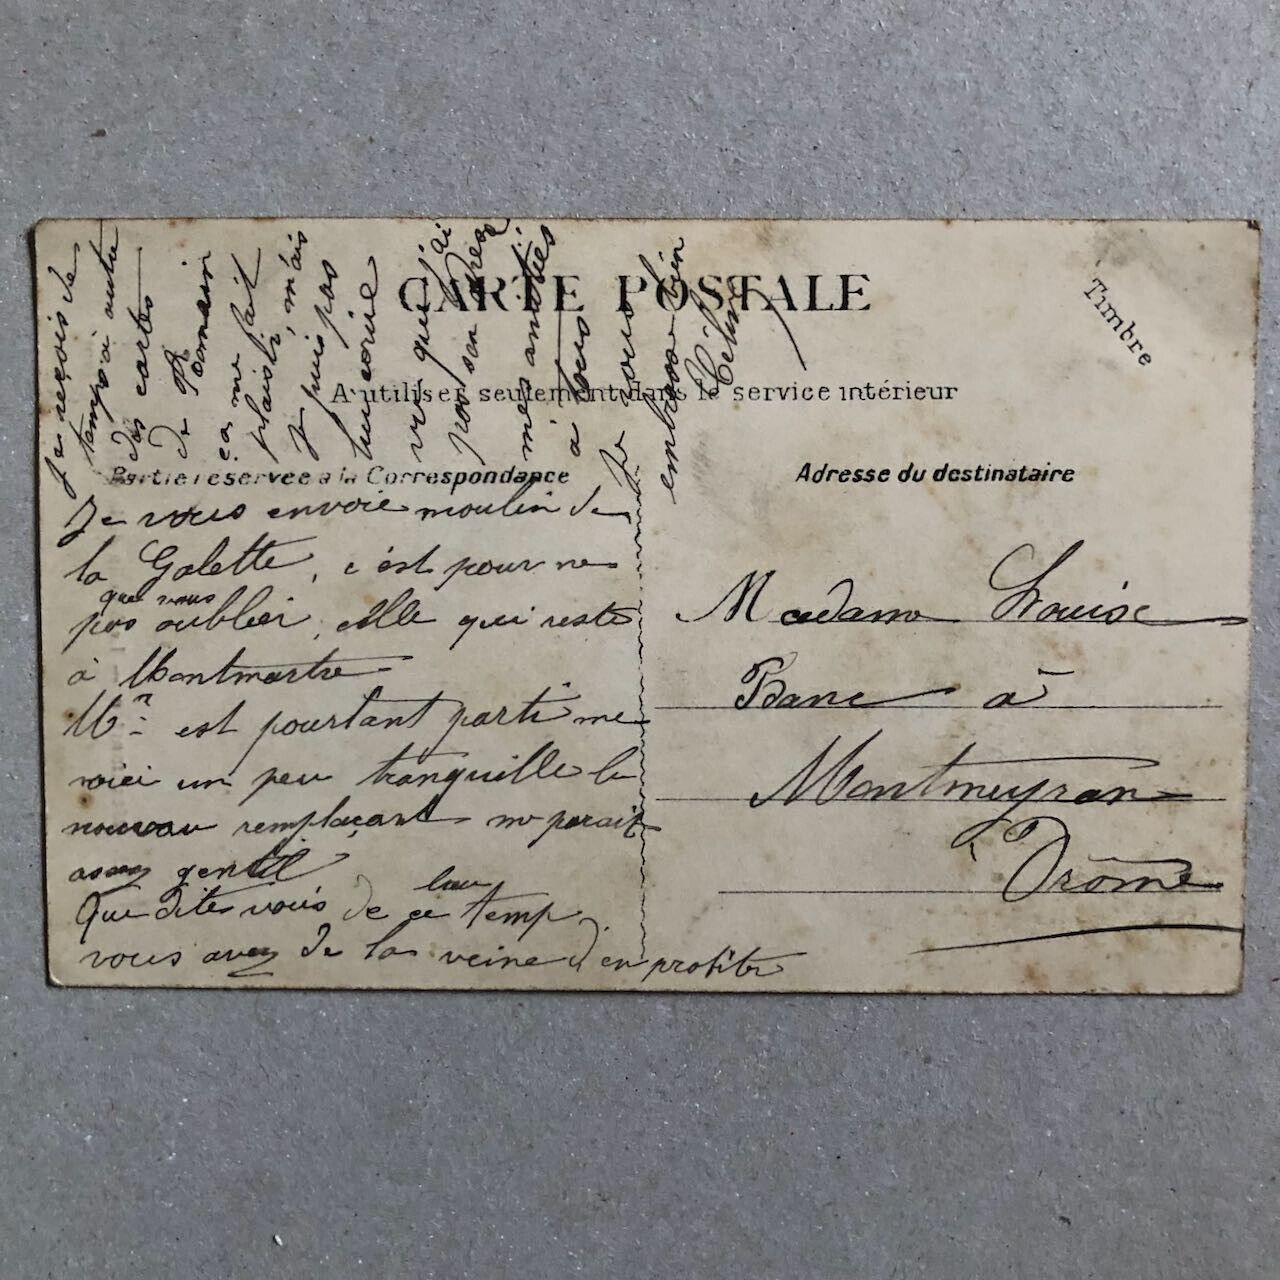 CARTE POSTALE
Timbre
A utiliser seulement dans le service intérieur
Partie réservée à la Correspondance
Adresse du destinataire
Je vous envoie moulin de
la Galette, c'est pour ne
que vous
pas oublier, elle qui reste
à Montmartre
Mr est pourtant parti me
voici un peu tranquille le
nouveau remplaçant me parait
assez gentil
Que dite vous de ce beau temp
vous avez de la veine d'en profiter
Je reçois de
temps à autre
des cartes
de Romain
ça me fait
plaisir, mais
je puis pas
lui écrire
vu que j'ai
pas son adresse
mes amitiés
à tous
Je vous
embrasse bien
Céline
Madame Louise
Banc à
Montmeyran
Drôme